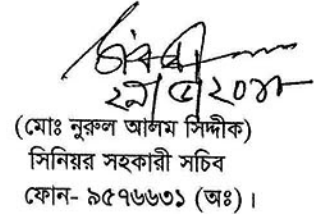 ২৯/৫/২০১৮
(মোঃ নুরুল আলম সিদ্দীক)
সিনিয়র সহকারী সচিব
ফোন- ৯৫৭৬৬৩১ (অঃ) ।